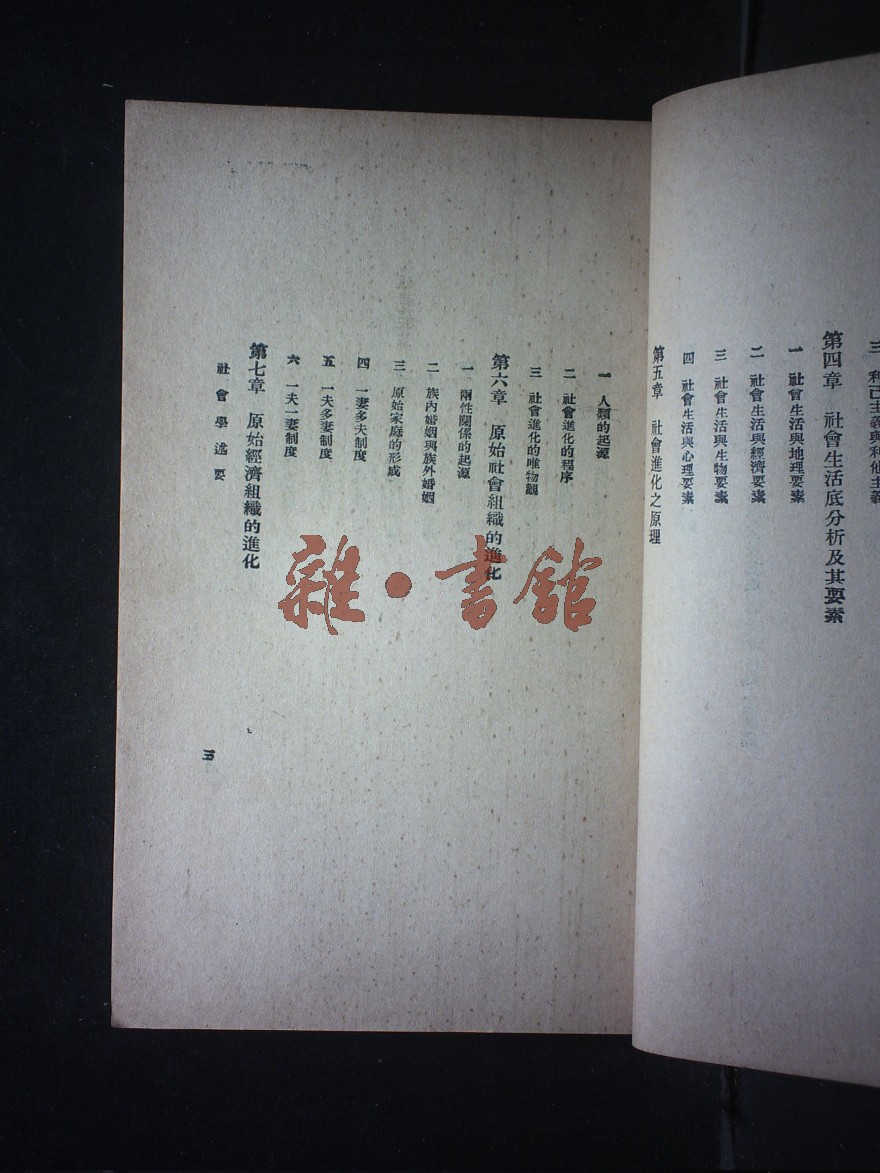 三 利己主義與利他主義
第四章 社會生活底分析及其要素
一 社會生活與地理要素
二 社會生活與經濟要素
三 社會生活與生物要素
四 社會生活與心理要素
第五章 社會進化之原理
一 人類的起源
二 社會進化的程序
三 社會進化的唯物觀
第六章 原始社會組織的進化
一 兩性關係的起源
二 族內婚姻與族外婚姻
三 原始家庭的形成
四 一妻多夫制度
五 一夫多妻制度
六 一夫一妻制度
第七章 原始經濟組織的進化
社會學述要
三
雜·書館